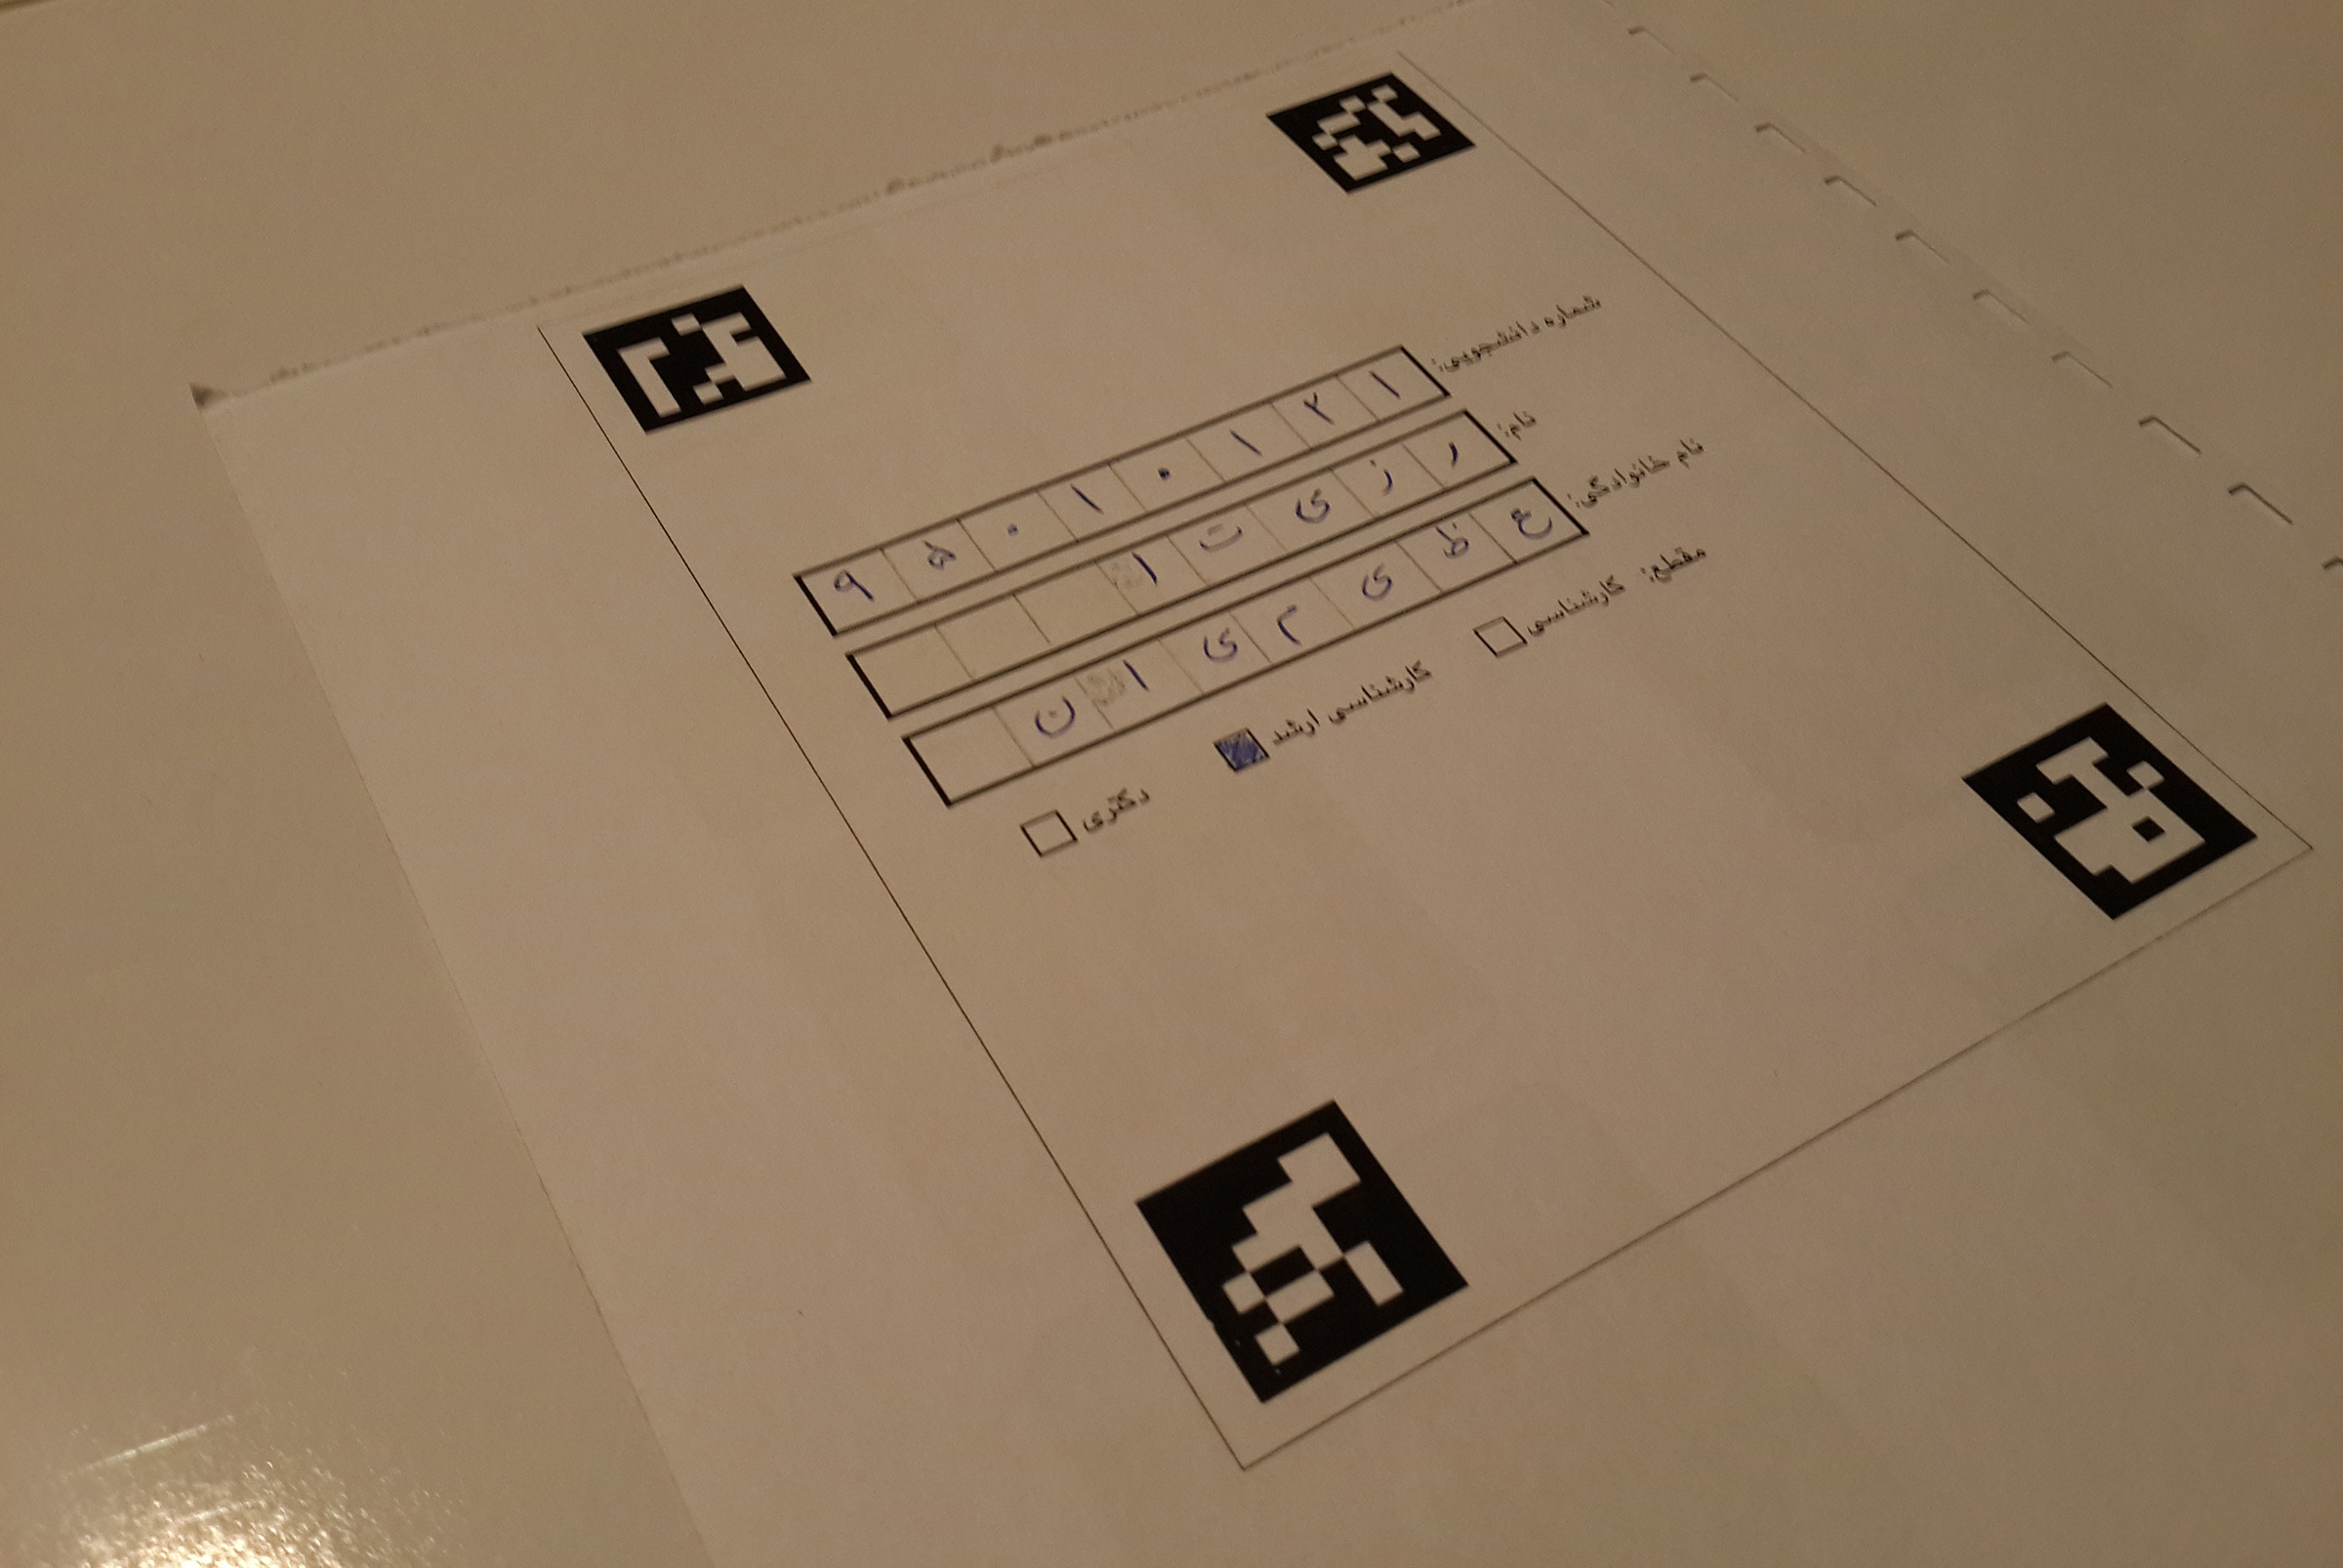 شماره دانشجویی: ۹۵۰۱۰۱۲۱
نام: ر ز ی ت ا
نام خانوادگی: ع ظ ی م ی ا ن
مقطع: کارشناسی کارشناسی ارشد دکتری